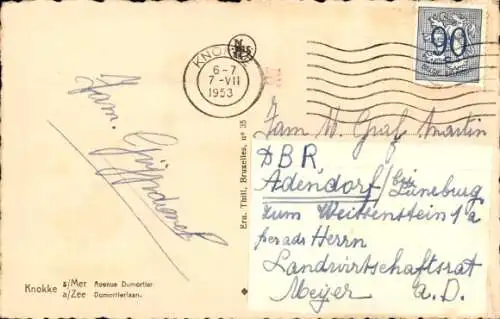 KNOKKE
6-7
7-VII
1953
90
Fam.
Fam. M. Graf Martin
DBR.
Adendorf/bei Lüneburg
zum Weissenstein 1a
per adr Herrn
Landwirtschaftsrat
Meyer a.D.
Ern. Thill, Bruxelles, nº 35
Knokke s/Mer Avenue Dumortier
a/Zee Dumortierlaan.